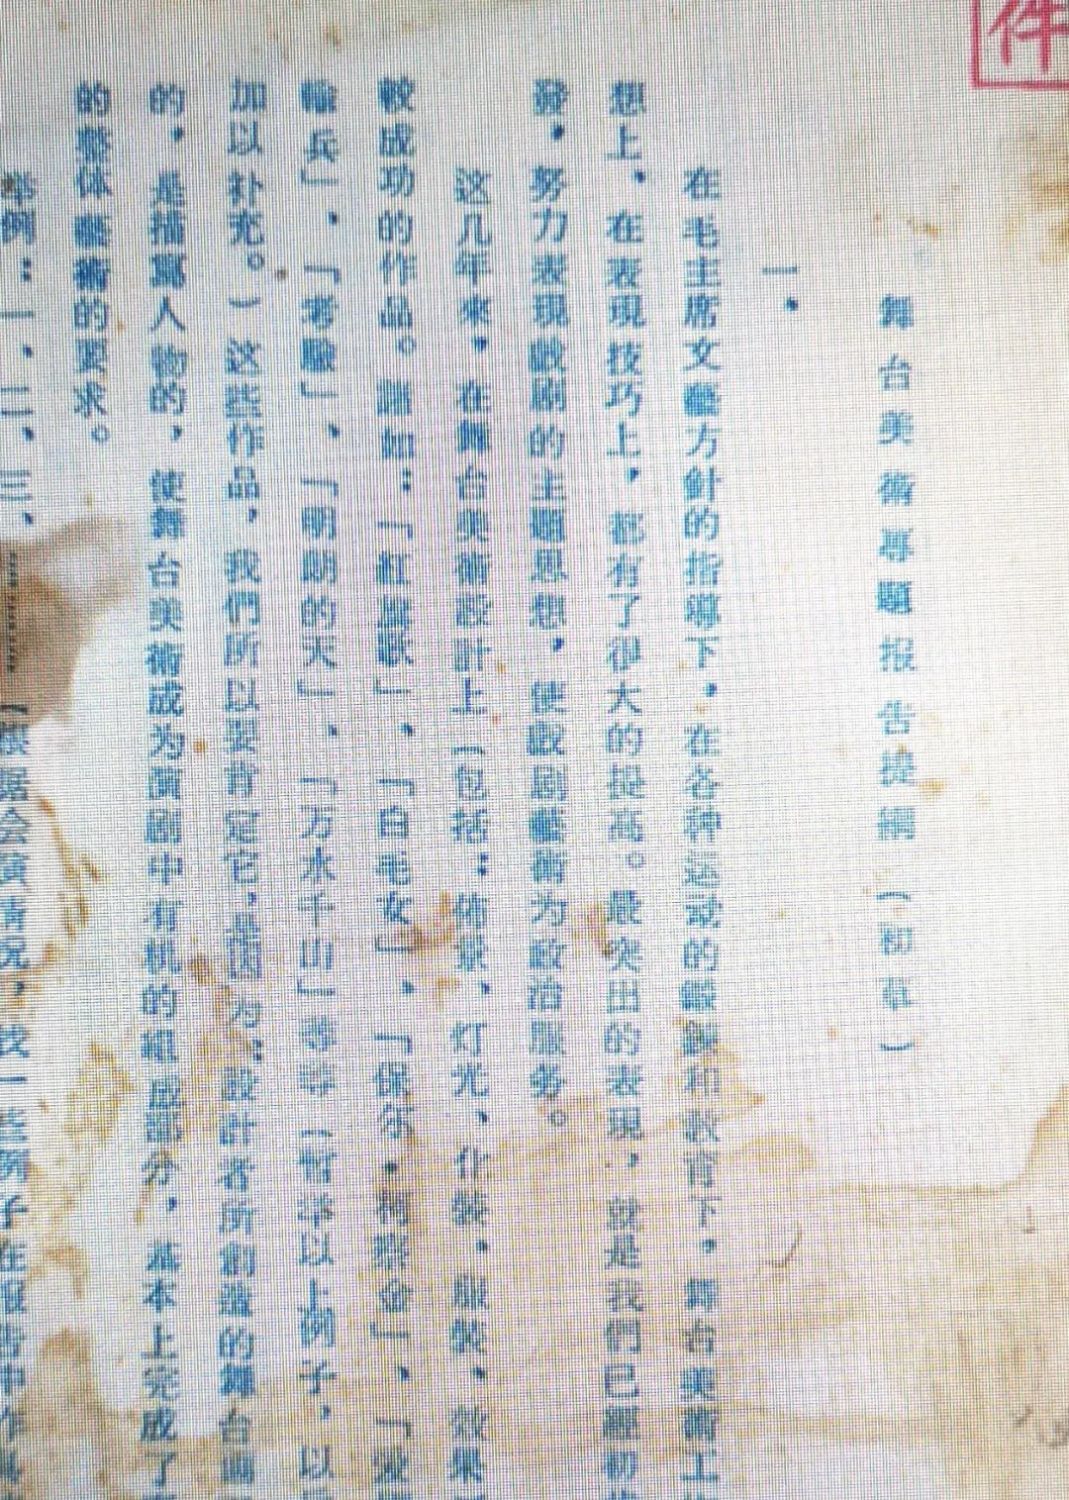 件
舞台美術専題报告提綱（初草）
一．
在毛主席文藝方針的指導下，在各种运动的鍛鍊和教育下，舞台美術工
想上，在表現技巧上，都有了很大的提高。最突出的表現，就是我們已經初
發，努力表現戲剧的主題思想，使戲剧藝術为政治服务。
这几年來，在舞台美術設計上（包括：佈景、灯光、化裝，服裝，效果
較成功的作品。譬如：「紅旗歌」、「白毛女」、「保尔．柯察金」、「
輸兵」，「考驗」、「明朗的天」、「万水千山」等等（暫举以上例子，以
加以补充。）这些作品，我們所以要肯定它，是因为，設計者所創造的舞台画
的，是描寫人物的，使舞台美術成为演剧中有机的組成部分，基本上完成了
的整体藝術的要求。
举例：一、二、三、………【根据会演情况，找一些例子在报告中作